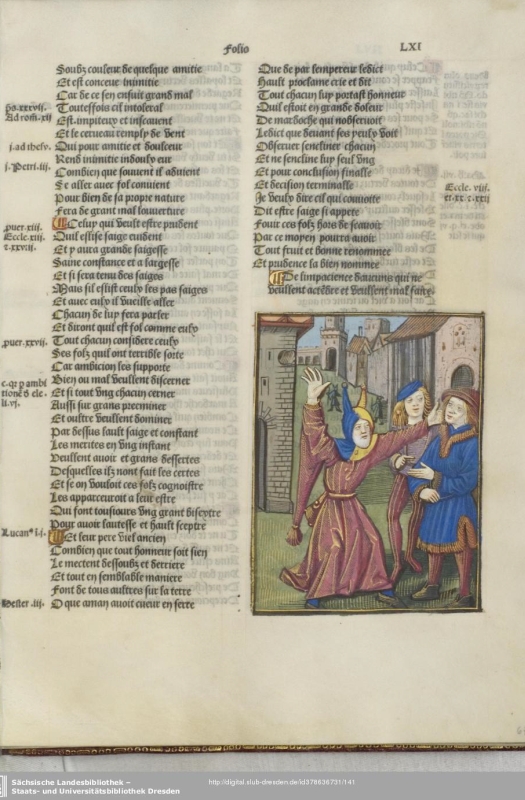 Folio LXI
Soubz couleur de quelque amitie
Et est conceue inimitie
Car de ce sen ensuit grand mal
Toutesfois cil intoleral
Est impiteux et inscauent
Et le cerueau remply de vent
Qui pour amitie et doulceur
Rend inimitie indouly eur
Combien que souuent il aduient
Se aller auec fol conuient
Pour bien de sa propre nature
Fera de grant mal louuerture
Celuy qui veult estre prudent
Quil eslise saige euident
Et y aura grande saigesse
Saine constance et a largesse
Et si sera tenu des saiges
Mais sil eslist ceulx les pas saiges
Et auec eulx il vueille aller
Chacun de luy fera parler
Et diront quil est fol comme eulx
Tout chacun considere ceulx
Ses folz quil ont terrible sorte
Car ambicion les supporte
Bien ou mal veullent discerner
Et si tout vng chacun cerner
Aussi sur grans preeminer
Et oultre veullent dominer
Par dessus lault saige et constant
Les merites en vng instant
Veullent auoir et grans dessertes
Desquelles ilz nont fait les certes
Et se on vouloit ces folz cognoistre
Les apparceuroit a leur estre
Qui sont tousiours vng grant bisextre
Pour auoir lautesse et hault sceptre
Et leur pere viel ancien
Combien que tout honneur soit sien
Le mectent dessoubz et derriere
Et tout en semblable maniere
Font de tous aultres sur la terre
O que aman auoit cueur en serre
ps. xxxvii.
Ad rom. xii
j. ad thess.
j. Petri. iij.
puer. xiii.
Eccle. xiii.
z. xxvii.
puer. xxvii.
c. qr p ambi
tionē d ele.
li. vj.
Lucan⁹ l. j.
Hester .iij.
Que de par lempereur ledict
Hault proclame crie et dit
Tout chacun luy portast honneur
Quil estoit en grande doleur
De mardoche qui nobseruoit
Ledict que deuant ses yeulx voit
Obseruer sencliner chacun
Et ne sencline luy seul vng
Et pour conclusion finalle
Et decision terminalle
Je veulx dire cil qui conuoite
Dit estre saige si appete
Fouir ces folz hors de scauoir
Par ce moyen pourra auoir
Tout fruit et bonne renommee
Et prudence la bien nommee
De limpacience daucuns qui ne
veullent actēdre et veullent mal faire.
Eccle. viii.
et. xx. z. xxij
Sächsische Landesbibliothek –
Staats- und Universitätsbibliothek Dresden
http://digital.slub-dresden.de/id378636701/141